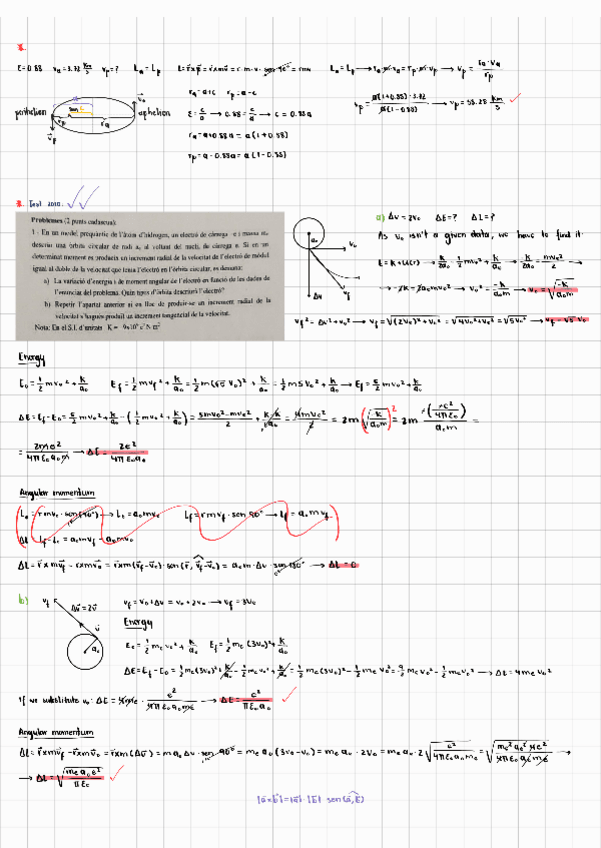 8.
ε=0.88 va=3.72 km/s vp=? La=Lp L=r×p=r×mv=r·m·v·sen90°=rmv La=Lp → ra·m·va=rp·m·vp → vp=ra·va/rp
perihelion aphelion
rp ra
vp
ra=a+c rp=a-c
ε=c/a → 0.88=c/a → c=0.88a
ra=a+0.88a=a(1+0.88)
rp=a-0.88a=a(1-0.88)
vp=a(1+0.88)·3.72/a(1-0.88) → vp=58.28 km/s ✓
Problemes (2 punts cadascun):
1.- En un model prequàntic de l'àtom d'hidrogen, un electró de càrrega -e i massa m,
descriu una òrbita circular de radi a₀ al voltant del nucli, de càrrega e. Si en un
determinat moment es produeix un increment radial de la velocitat de l'electró de mòdul
igual al doble de la velocitat que tenia l'electró en l'òrbita circular, es demana:
a) La variació d'energia i de moment angular de l'electró en funció de les dades de
l'enunciat del problema. Quin tipus d'òrbita descriurà l'electró?
b) Repetir l'apartat anterior si en lloc de produir-se un increment radial de la
velocitat s'hagués produït un increment tangencial de la velocitat.
a) Δv=2v₀ ΔE=? ΔL=?
As v₀ isn't a given data, we have to find it:
a₀ v₀
Δv vf
vf²=Δv²+v₀² → vf=√((2v₀)²+v₀²)=√(4v₀²+v₀²)=√(5v₀²) → vf=√5 v₀
Energy
E₀=1/2 mv₀²+k/a₀ Ef=1/2 mvf²+k/a₀=1/2 m(√5 v₀)²+k/a₀=1/2 m5v₀²+k/a₀ → Ef=5/2 mv₀²+k/a₀
→ ΔE=2e²/4πε₀a₀
Angular momentum
ΔL=r×mvf-r×mv₀=r×m(vf-v₀)·sen(r, vf-v₀)=a₀m·Δv·sen180° → ΔL=0
b) vf Δv=2v v a₀
vf=v₀+Δv=v₀+2v₀ → vf=3v₀
Energy
E₀=1/2 mev₀²+k/a₀ Ef=1/2 me(3v₀)²+k/a₀
ΔE=Ef-E₀=1/2 me(3v₀)²+k/a₀-1/2 mev₀²-k/a₀=1/2 me(3v₀)²-1/2 mev₀²=9/2 mev₀²-1/2 mev₀² → ΔE=4mev₀²
If we substitute v₀: ΔE=4me·e²/4πε₀a₀me → ΔE=e²/πε₀a₀ ✓
Angular momentum
ΔL=r×mvf-r×mv₀=r×m(Δv)=ma₀Δv·sen90°=mea₀(3v₀-v₀)=mea₀·2v₀=mea₀·2√(e²/4πε₀a₀me)=√(me²a₀²4e²/4πε₀a₀me) →
→ ΔL=√(mea₀e²/πε₀) ✓
|a×b|=|a|·|b|·sen(a,b)